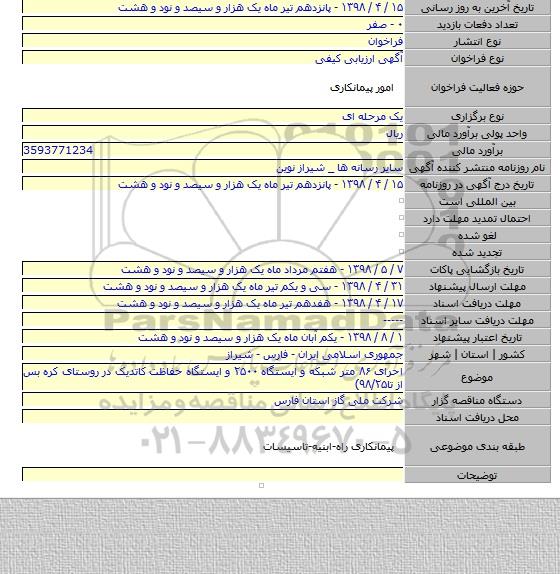 تاریخ آخرین به روز رسانی ۱۵ / ۴ / ۱۳۹۸ - پانزدهم تیر ماه یک هزار و سیصد و نود و هشت
تعداد دفعات بازدید ۰ - صفر
نوع انتشار فراخوان
نوع فراخوان آگهی ارزیابی کیفی
حوزه فعالیت فراخوان امور پیمانکاری
نوع برگزاری یک مرحله ای
واحد پولی برآورد مالی ریال
برآورد مالی 3593771234
نام روزنامه منتشر کننده آگهی سایر رسانه ها _ شیراز نوین
تاریخ درج آگهی در روزنامه ۱۵ / ۴ / ۱۳۹۸ - پانزدهم تیر ماه یک هزار و سیصد و نود و هشت
بین المللی است
احتمال تمدید مهلت دارد
لغو شده
تجدید شده
تاریخ بازگشایی پاکات ۷ / ۵ / ۱۳۹۸ - هفتم مرداد ماه یک هزار و سیصد و نود و هشت
مهلت ارسال پیشنهاد ۳۱ / ۴ / ۱۳۹۸ - سی و یکم تیر ماه یک هزار و سیصد و نود و هشت
مهلت دریافت اسناد ۱۷ / ۴ / ۱۳۹۸ - هفدهم تیر ماه یک هزار و سیصد و نود و هشت
مهلت دریافت سایر اسناد -----
تاریخ اعتبار پیشنهاد ۱ / ۸ / ۱۳۹۸ - یکم آبان ماه یک هزار و سیصد و نود و هشت
کشور | استان | شهر جمهوری اسلامی ایران - فارس - شیراز
موضوع اجرای ۸۶ متر شبکه و ایستگاه ۲۵۰۰ و ایستگاه حفاظت کاتدیک در روستای کره بس
از تا۹۸/۲۵)
دستگاه مناقصه گزار شرکت ملی گاز استان فارس
محل دریافت اسناد
طبقه بندی موضوعی پیمانکاری راه-ابنیه-تاسیسات
توضیحات
ParsNamadData
پایگاه اطلاع رسانی مناقصه و مزایده
۰۲۱-۸۸۳۴۹۶۷۰-۵